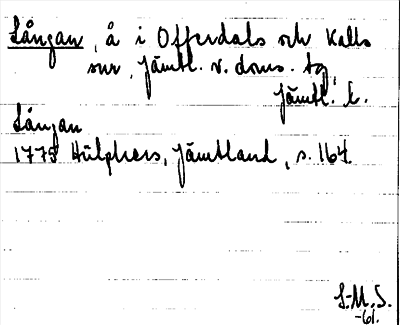 Långan, å i Offerdals och Kalls
snr, Jämtl. v. doms. tg,
Jämtl. l.
Långan
1775 Hülphers, Jämtland, s. 164.
S.-M.S.
-61.